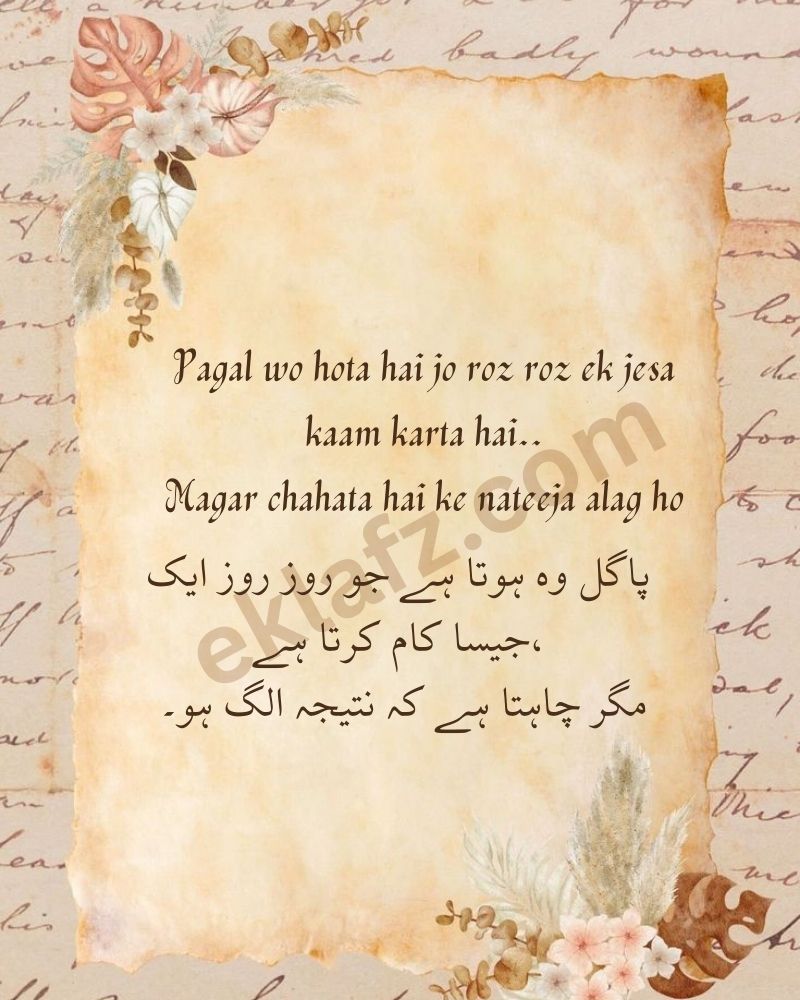 Pagal wo hota hai jo roz roz ek jesa
kaam karta hai..
Magar chahata hai ke nateeja alag ho
پاگل وہ ہوتا ہے جو روز روز ایک
جیسا کام کرتا ہے،
مگر چاہتا ہے کہ نتیجہ الگ ہو۔
eklafz.com